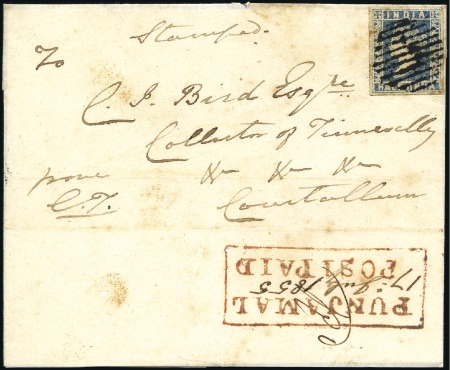 Stamped.
INDIA
HALF
To
C. J. Bird Esqre
Collector of Tinnevelly
&c &c &c
from
C.T.
Courtallum
PUNJAMAL
17 July 1855
POST PAID